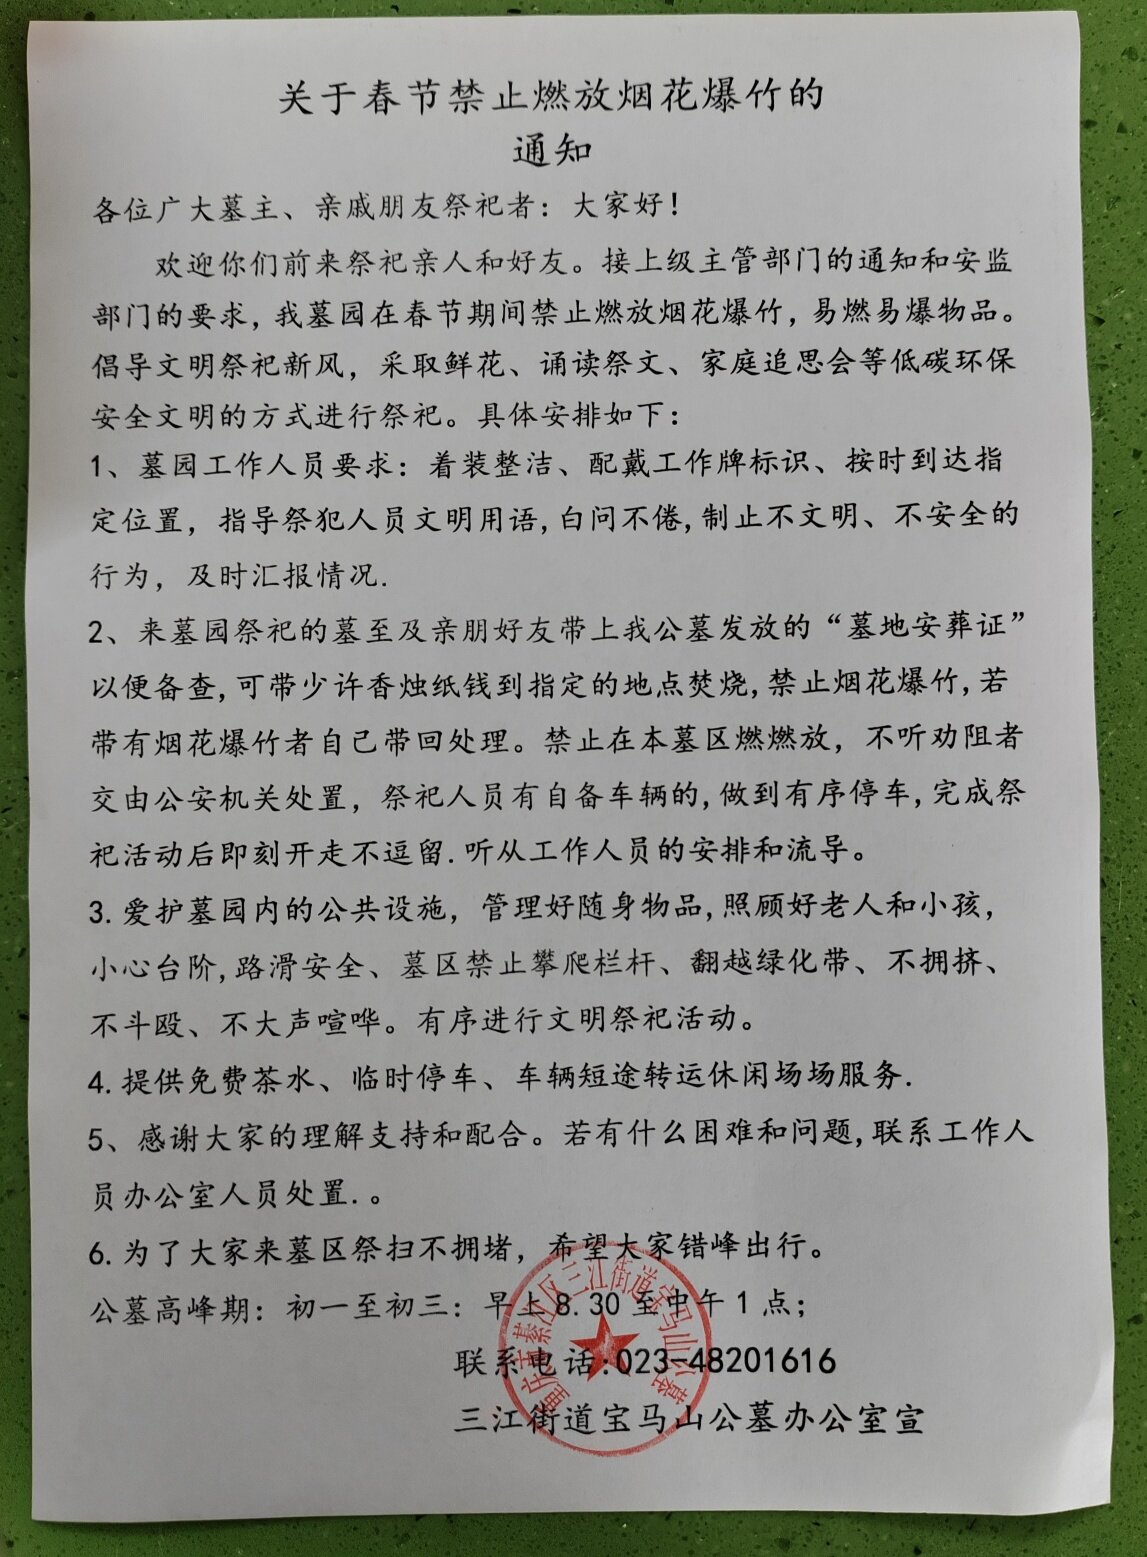 关于春节禁止燃放烟花爆竹的
通知
各位广大墓主、亲戚朋友祭祀者：大家好！
欢迎你们前来祭祀亲人和好友。接上级主管部门的通知和安监
部门的要求，我墓园在春节期间禁止燃放烟花爆竹，易燃易爆物品。
倡导文明祭祀新风，采取鲜花、诵读祭文、家庭追思会等低碳环保
安全文明的方式进行祭祀。具体安排如下：
1、墓园工作人员要求：着装整洁、配戴工作牌标识、按时到达指
定位置，指导祭犯人员文明用语,白问不倦,制止不文明、不安全的
行为，及时汇报情况.
2、来墓园祭祀的墓至及亲朋好友带上我公墓发放的“墓地安葬证”
以便备查,可带少许香烛纸钱到指定的地点焚烧,禁止烟花爆竹,若
带有烟花爆竹者自己带回处理。禁止在本墓区燃燃放，不听劝阻者
交由公安机关处置，祭祀人员有自备车辆的,做到有序停车,完成祭
祀活动后即刻开走不逗留.听从工作人员的安排和流导。
3.爱护墓园内的公共设施，管理好随身物品,照顾好老人和小孩，
小心台阶,路滑安全、墓区禁止攀爬栏杆、翻越绿化带、不拥挤、
不斗殴、不大声喧哗。有序进行文明祭祀活动。
4.提供免费茶水、临时停车、车辆短途转运休闲场场服务.
5、感谢大家的理解支持和配合。若有什么困难和问题,联系工作人
员办公室人员处置.。
6.为了大家来墓区祭扫不拥堵，希望大家错峰出行。
公墓高峰期：初一至初三：早上8.30至中午1点；
联系电话:023-48201616
三江街道宝马山公墓办公室宣
重庆市綦江区三江街道宝马山公墓